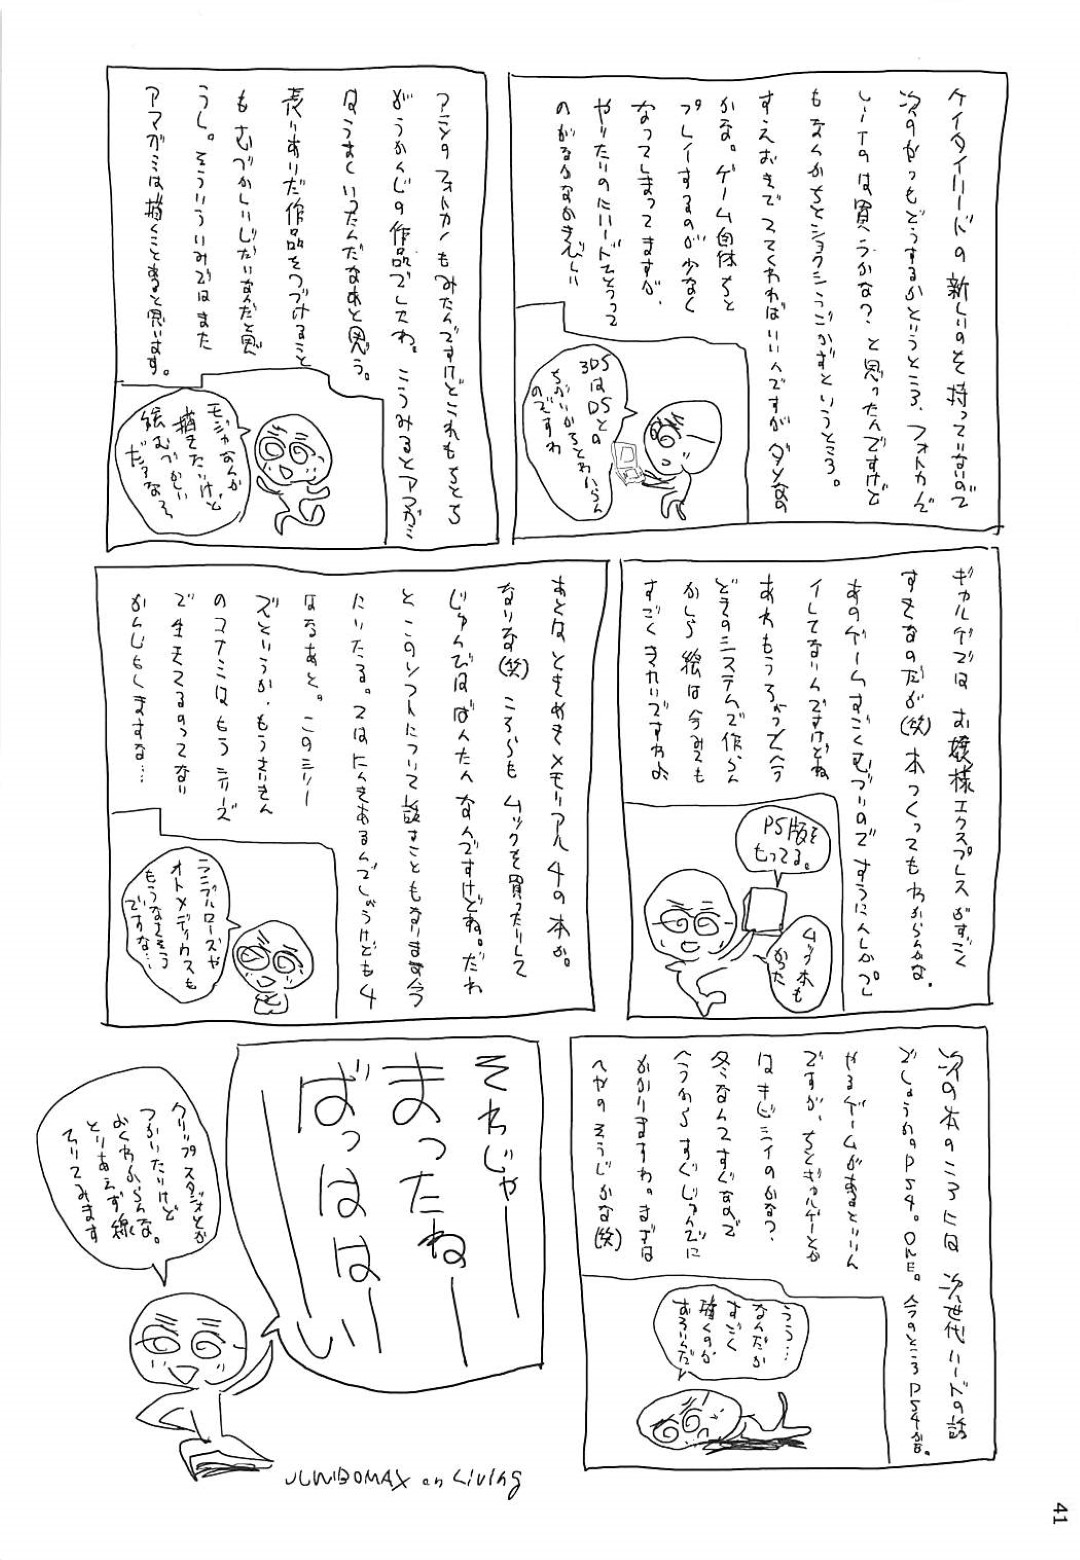 ケイタイハードの新しいのを持っていないので
次のがっもどうするかというところ、フォトカノ
しいTのは買うかな？と思ったんですけど
もなんかちとショクシうごかずというところ。
すえおきででてくればいいんですがダメなの
かな。ゲーム自体ちと
プレイするのが少なく
なってしまってますが、
やりたいのにハードでそろって
のがなかなかきびしい
3DSはDSとの
ちがいがちとわからん
のですわ
アニメのフォトカノもみたんですけどこれもちとち
がうかんじの作品でしたね。こうみるとアマガミ
はうまくいったんだなあと思う。
売りありだ作品をつづけること
もむづかしいじだいなんだと思
うし。そういういみではまた
アマガミは描くことあると思います。
モジャなんか
描きたいけど
絵むづかしい
だろなろ
ギャルゲーではお嬢様エクスプレスがすごく
すきなのだが(笑)本つくってもわからんかな。
あのゲームすごくむづいのですうにんしかプレ
イしてないんですけどね
あれもうちょっとヘタ
どきのシステムで作らん
かしら絵は今みても
すごくきれいですわよ
PS版を
もってる。
ムック本も
かった
あとはときめきメモリアル4の本か。
なりな(笑)ころらもムックを買ったりして
じゅんびはばんたんなんですけどね。だわ
とこのソフトについて語ることもなりまあ今
にいたる。2はにんきあるんでしょうけども4
はなあと。このシリー
ズというか、もうさいきん
のコナミはもうシリーズ
で生きてるのってない
かんじもしますな…
ランブルローズや
オトメディウスも
もうなさそう
ですな…
次の本のころには次世代ハードの話
でしょうかのPS4。ONE。今のところPS4か。
やるゲームがあるといいん
ですが、ちとギャルゲーとか
はキビシイのかな？
冬なんてすぐなので
今うからすぐじゅんびに
かかりますわ。まずは
へやのそうじかな(笑)
うう…
なんだか
すごく
描くのが
おそいんだ
それじゃーー
まったねーー
ばっははーい
クリップスタジオとか
つかいたいけど
よくわからんな。
とりあえず線
でいってみます
JUNBOMAX on Living
41